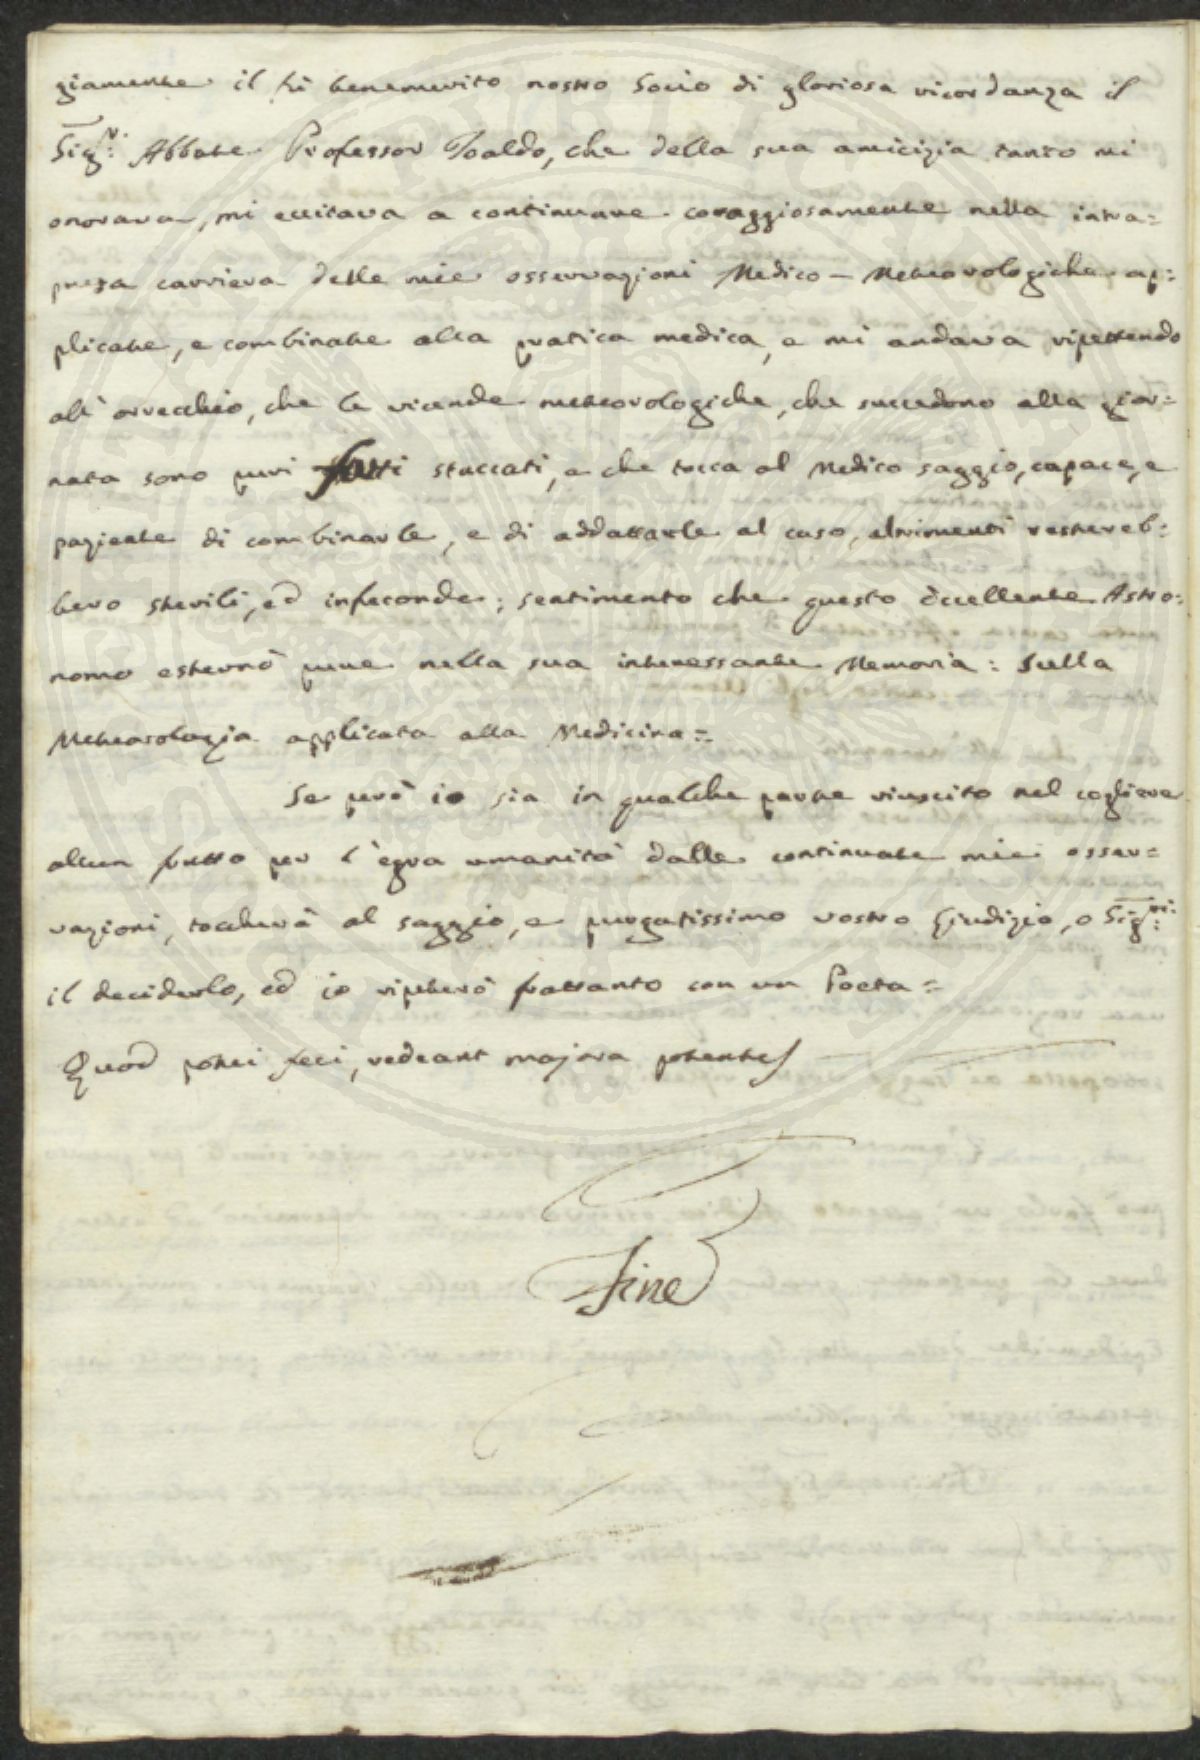 giamente il fù benemerito nostro Socio di gloriosa ricordanza il
Sig.r Abbate Professor Toaldo, che della sua amicizia tanto mi
onorava, mi eccitava a continuare coraggiosamente nella intra=
presa carriera delle mie osservazioni Medico - Meteorologiche ap=
plicate, e combinate alla pratica medica, e mi andava ripettendo
all' orecchio, che le vicende meteorologiche, che succedono alla gior=
nata sono puri fatti staccati, e che tocca al Medico saggio, capace, e
paziente di combinarle, e di addattarle al caso, altrimenti restereb=
bero sterili, ed infeconde; sentimento che questo eccellente Astro=
nomo esternò pure nella sua interessante Memoria: Sulla
Meteorologia applicata alla Medicina=
Se però io sia in qualche parte riuscito nel cogliere
alcun frutto per l'egra umanità dalle continuate mie osser=
vazioni, toccherà al saggio, e purgatissimo vostro Giudizio, o Sig.ri
il deciderlo, ed io ripeterò frattanto con un Poeta=
Quod potui feci, vedeant majora potentes
Fine